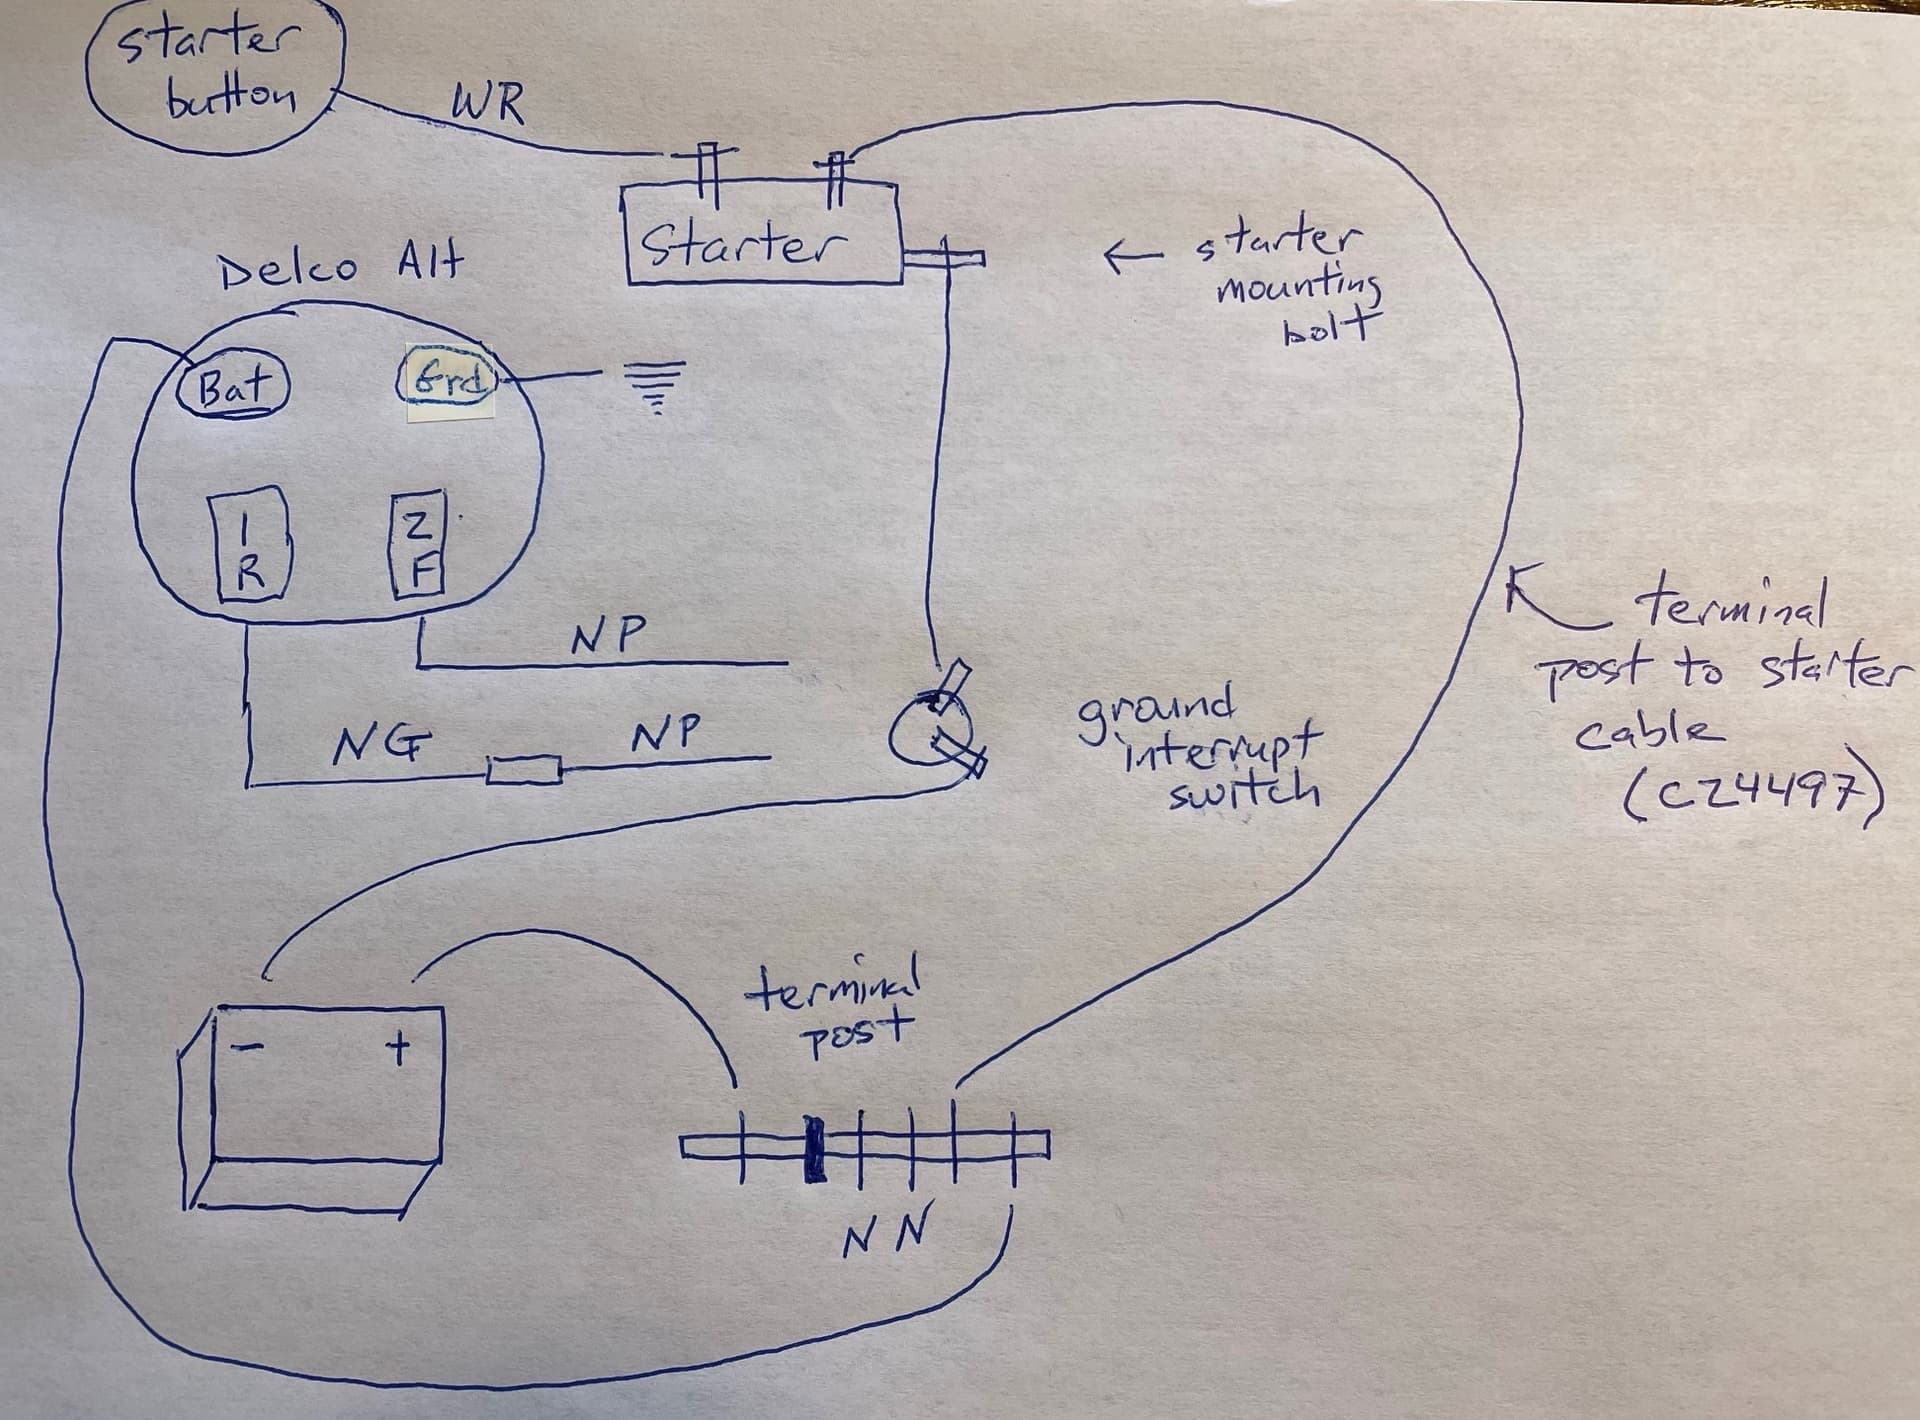 starter
button
WR
Starter
← starter
mounting
bolt
Delco Alt
Bat
Grd
1
R
2
F
NP
NG
NP
ground
interrupt
switch
terminal
post to starter
cable
(C24497)
- +
terminal
post
N N